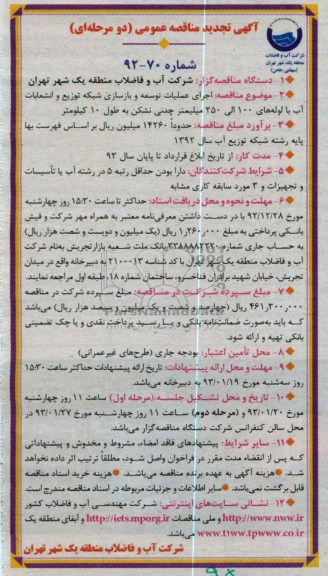 آگهی تجدید مناقصه عمومی (دو مرحله‌ای)
شماره ۷۰-۹۲
شرکت آب و فاضلاب
منطقه یک شهر تهران
(سهامی خاص)
۱- دستگاه مناقصه‌گزار: شرکت آب و فاضلاب منطقه یک شهر تهران
۲- موضوع مناقصه: اجرای عملیات توسعه و بازسازی شبکه توزیع و انشعابات
آب با لوله‌های ۱۰۰ الی ۲۵۰ میلیمتر چدنی نشکن به طول ۱۰ کیلومتر
۳- برآورد مبلغ مناقصه: حدوداً ۱۴۲۶۰ میلیون ریال بر اساس فهرست بها
پایه رشته شبکه توزیع آب سال ۱۳۹۲
۴- مدت کار: از تاریخ ابلاغ قرارداد تا پایان سال ۹۳
۵- شرایط شرکت‌کنندگان: دارا بودن حداقل رتبه ۵ در رشته آب یا تأسیسات
و تجهیزات و ۳ مورد سابقه کاری مشابه
۶- مهلت و نحوه و محل دریافت اسناد: حداکثر تا ساعت ۱۵:۳۰ روز چهارشنبه
مورخ ۹۲/۱۲/۲۸ با در دست داشتن معرفی‌نامه معتبر به همراه مهر شرکت و فیش
بانکی پرداختی به مبلغ ۱,۲۶۰,۰۰۰ ریال (یک میلیون و دویست و شصت هزار ریال)
به حساب جاری شماره بانک ملت شعبه بازار تجریش به‌نام شرکت
آب و فاضلاب منطقه یک شهر تهران با کد شناسه ۲۱۰۰۰۱۳ به دبیرخانه واقع در میدان
تجریش، خیابان شهید برادران فناخسرو، ساختمان شماره ۱۸، طبقه اول مراجعه نمایند.
۷- مبلغ سپرده شرکت در مناقصه: مبلغ سپرده شرکت در مناقصه
۴۶۱,۳۰۰,۰۰۰ ریال (چهارصد و شصت و یک میلیون و سیصد هزار ریال) می‌باشد
که باید به‌صورت ضمانت‌نامه بانکی و یا رسید پرداخت نقدی و یا چک تضمینی
بانکی تهیه و ارائه شود.
۸- محل تأمین اعتبار: بودجه جاری (طرح‌های غیرعمرانی)
۹- مهلت و محل ارائه پیشنهادات: تاریخ ارائه پیشنهادات حداکثر ساعت ۱۵:۳۰
روز سه‌شنبه مورخ ۹۳/۰۱/۱۹ به دبیرخانه می‌باشد.
۱۰- تاریخ و محل تشکیل جلسه: (مرحله اول) ساعت ۱۱ روز چهارشنبه
مورخ ۹۳/۰۱/۲۰ و (مرحله دوم) ساعت ۱۱ روز چهارشنبه مورخ ۹۳/۰۱/۲۷ در
محل سالن کنفرانس شرکت دستگاه مناقصه‌گزار می‌باشد.
۱۱- سایر شرایط: پیشنهادهای فاقد امضاء، مشروط و مخدوش و پیشنهاداتی
که پس از انقضاء مدت مقرر در فراخوان واصل شود، مطلقاً ترتیب اثر داده نخواهد
شد. هزینه آگهی به عهده برنده مناقصه می‌باشد. هزینه خرید اسناد مناقصه
قابل برگشت نمی‌باشد. سایر اطلاعات و جزئیات مربوطه در اسناد مناقصه مندرج است.
۱۲- نشانی سایت‌های اینترنتی: شرکت مهندسی آب و فاضلاب کشور
http://www.nww.ir و ملی مناقصات http://iets.mporg.ir و آبفای منطقه یک
www.t1ww.tpww.co.ir می‌باشد.
شرکت آب و فاضلاب منطقه یک شهر تهران